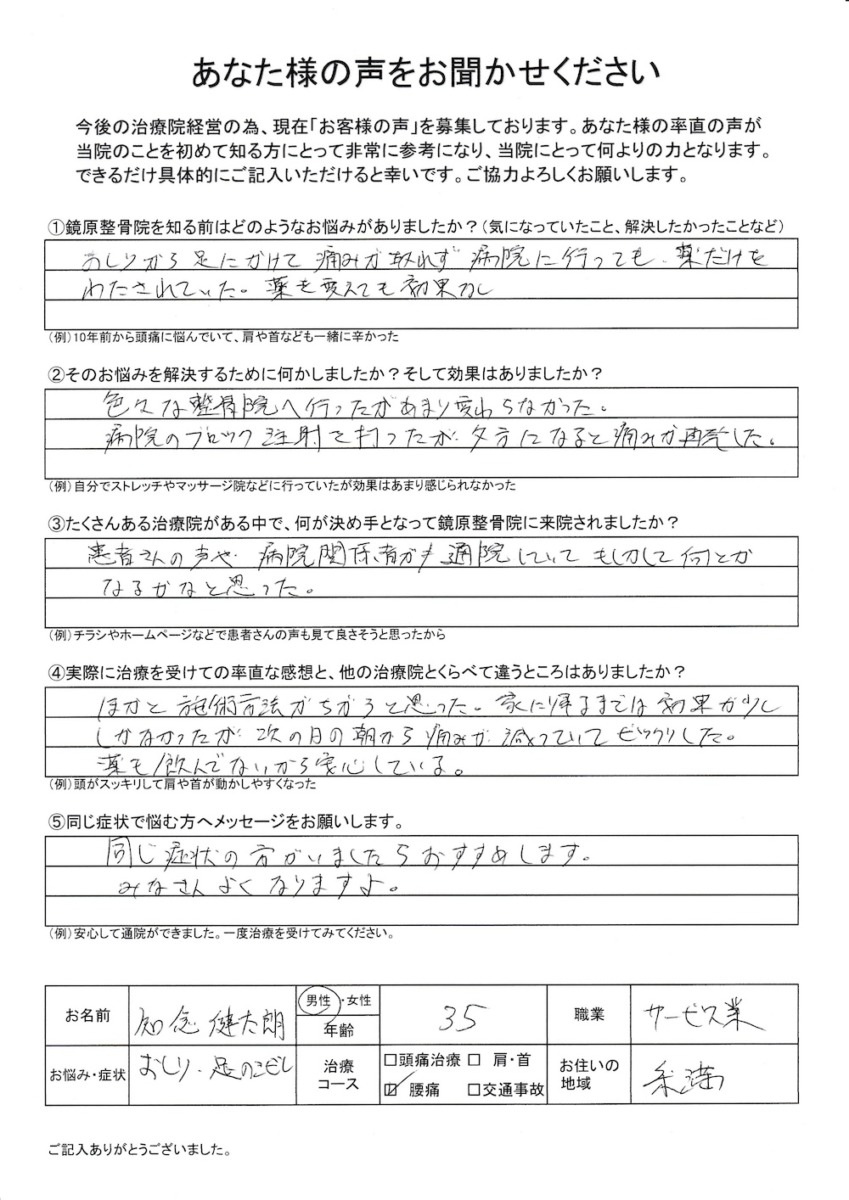 あなた様の声をお聞かせください
今後の治療院経営の為、現在「お客様の声」を募集しております。あなた様の率直の声が
当院のことを初めて知る方にとって非常に参考になり、当院にとって何よりの力となります。
できるだけ具体的にご記入いただけると幸いです。ご協力よろしくお願いします。
①鏡原整骨院を知る前はどのようなお悩みがありましたか？（気になっていたこと、解決したかったことなど）
おしりから足にかけて痛みが取れず病院に行っても、薬だけを
わたされていた。薬を変えても効果なし
（例）10年前から頭痛に悩んでいて、肩や首なども一緒に辛かった
②そのお悩みを解決するために何かしましたか？そして効果はありましたか？
色々な整骨院へ行ったがあまり変わらなかった。
病院のブロック注射を打ったが、夕方になると痛みが再発した。
（例）自分でストレッチやマッサージ院などに行っていたが効果はあまり感じられなかった
③たくさんある治療院がある中で、何が決め手となって鏡原整骨院に来院されましたか？
患者さんの声や 病院関係者が 通院していて もしかして何とか
なるかなと思った。
（例）チラシやホームページなどで患者さんの声も見て良さそうと思ったから
④実際に治療を受けての率直な感想と、他の治療院とくらべて違うところはありましたか？
ほかと施術方法がちがうと思った。家に帰るまでは効果が少し
しかなかったが次の日の朝から痛みが減っていてビックリした。
薬も飲んでないから安心している。
（例）頭がスッキリして肩や首が動かしやすくなった
⑤同じ症状で悩む方へメッセージをお願いします。
同じ症状の方がいましたらおすすめします。
みなさんよくなりますよ。
（例）安心して通院ができました。一度治療を受けてみてください。
お名前 知念 健太朗 男性・女性 年齢 35 職業 サービス業
お悩み・症状 おしり・足の 治療コース □頭痛治療 □ 肩・首 ☑ 腰痛 □交通事故 お住いの地域 糸満
ご記入ありがとうございました。